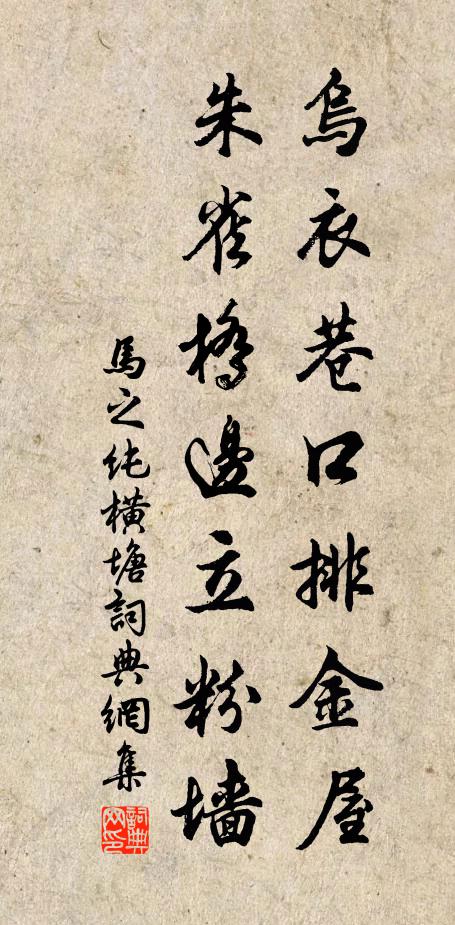 烏衣巷口排金屋
朱雀橋邊立粉墻
馬之純橫塘詞典網集
詞典網印